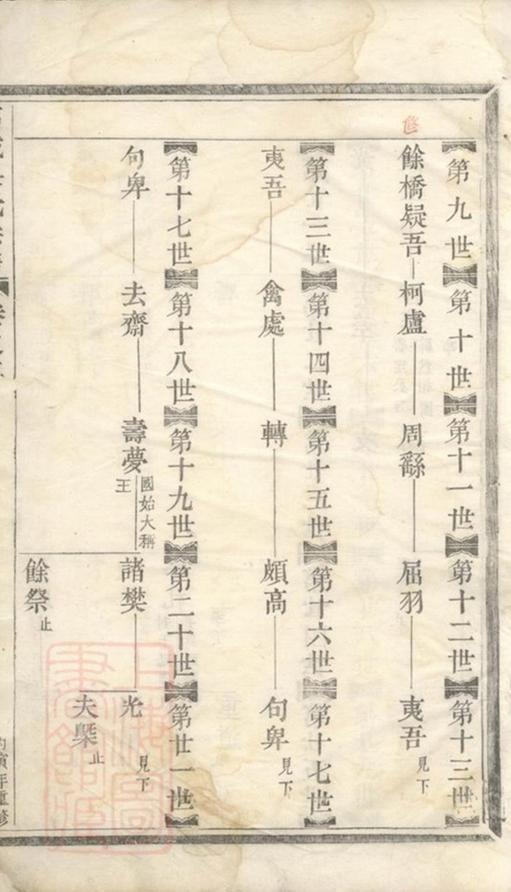 第九世 第十世 第十一世 第十二世 第十三世
餘橋疑吾 柯盧 周繇 屈羽 夷吾 見下
第十三世 第十四世 第十五世 第十六世 第十七世
夷吾 禽處 轉 頗高 句卑 見下
第十七世 第十八世 第十九世 第二十世 第廿一世
句卑 去齋 壽夢 國始大稱王 諸樊 光 見下
夫槩 止
餘祭 止